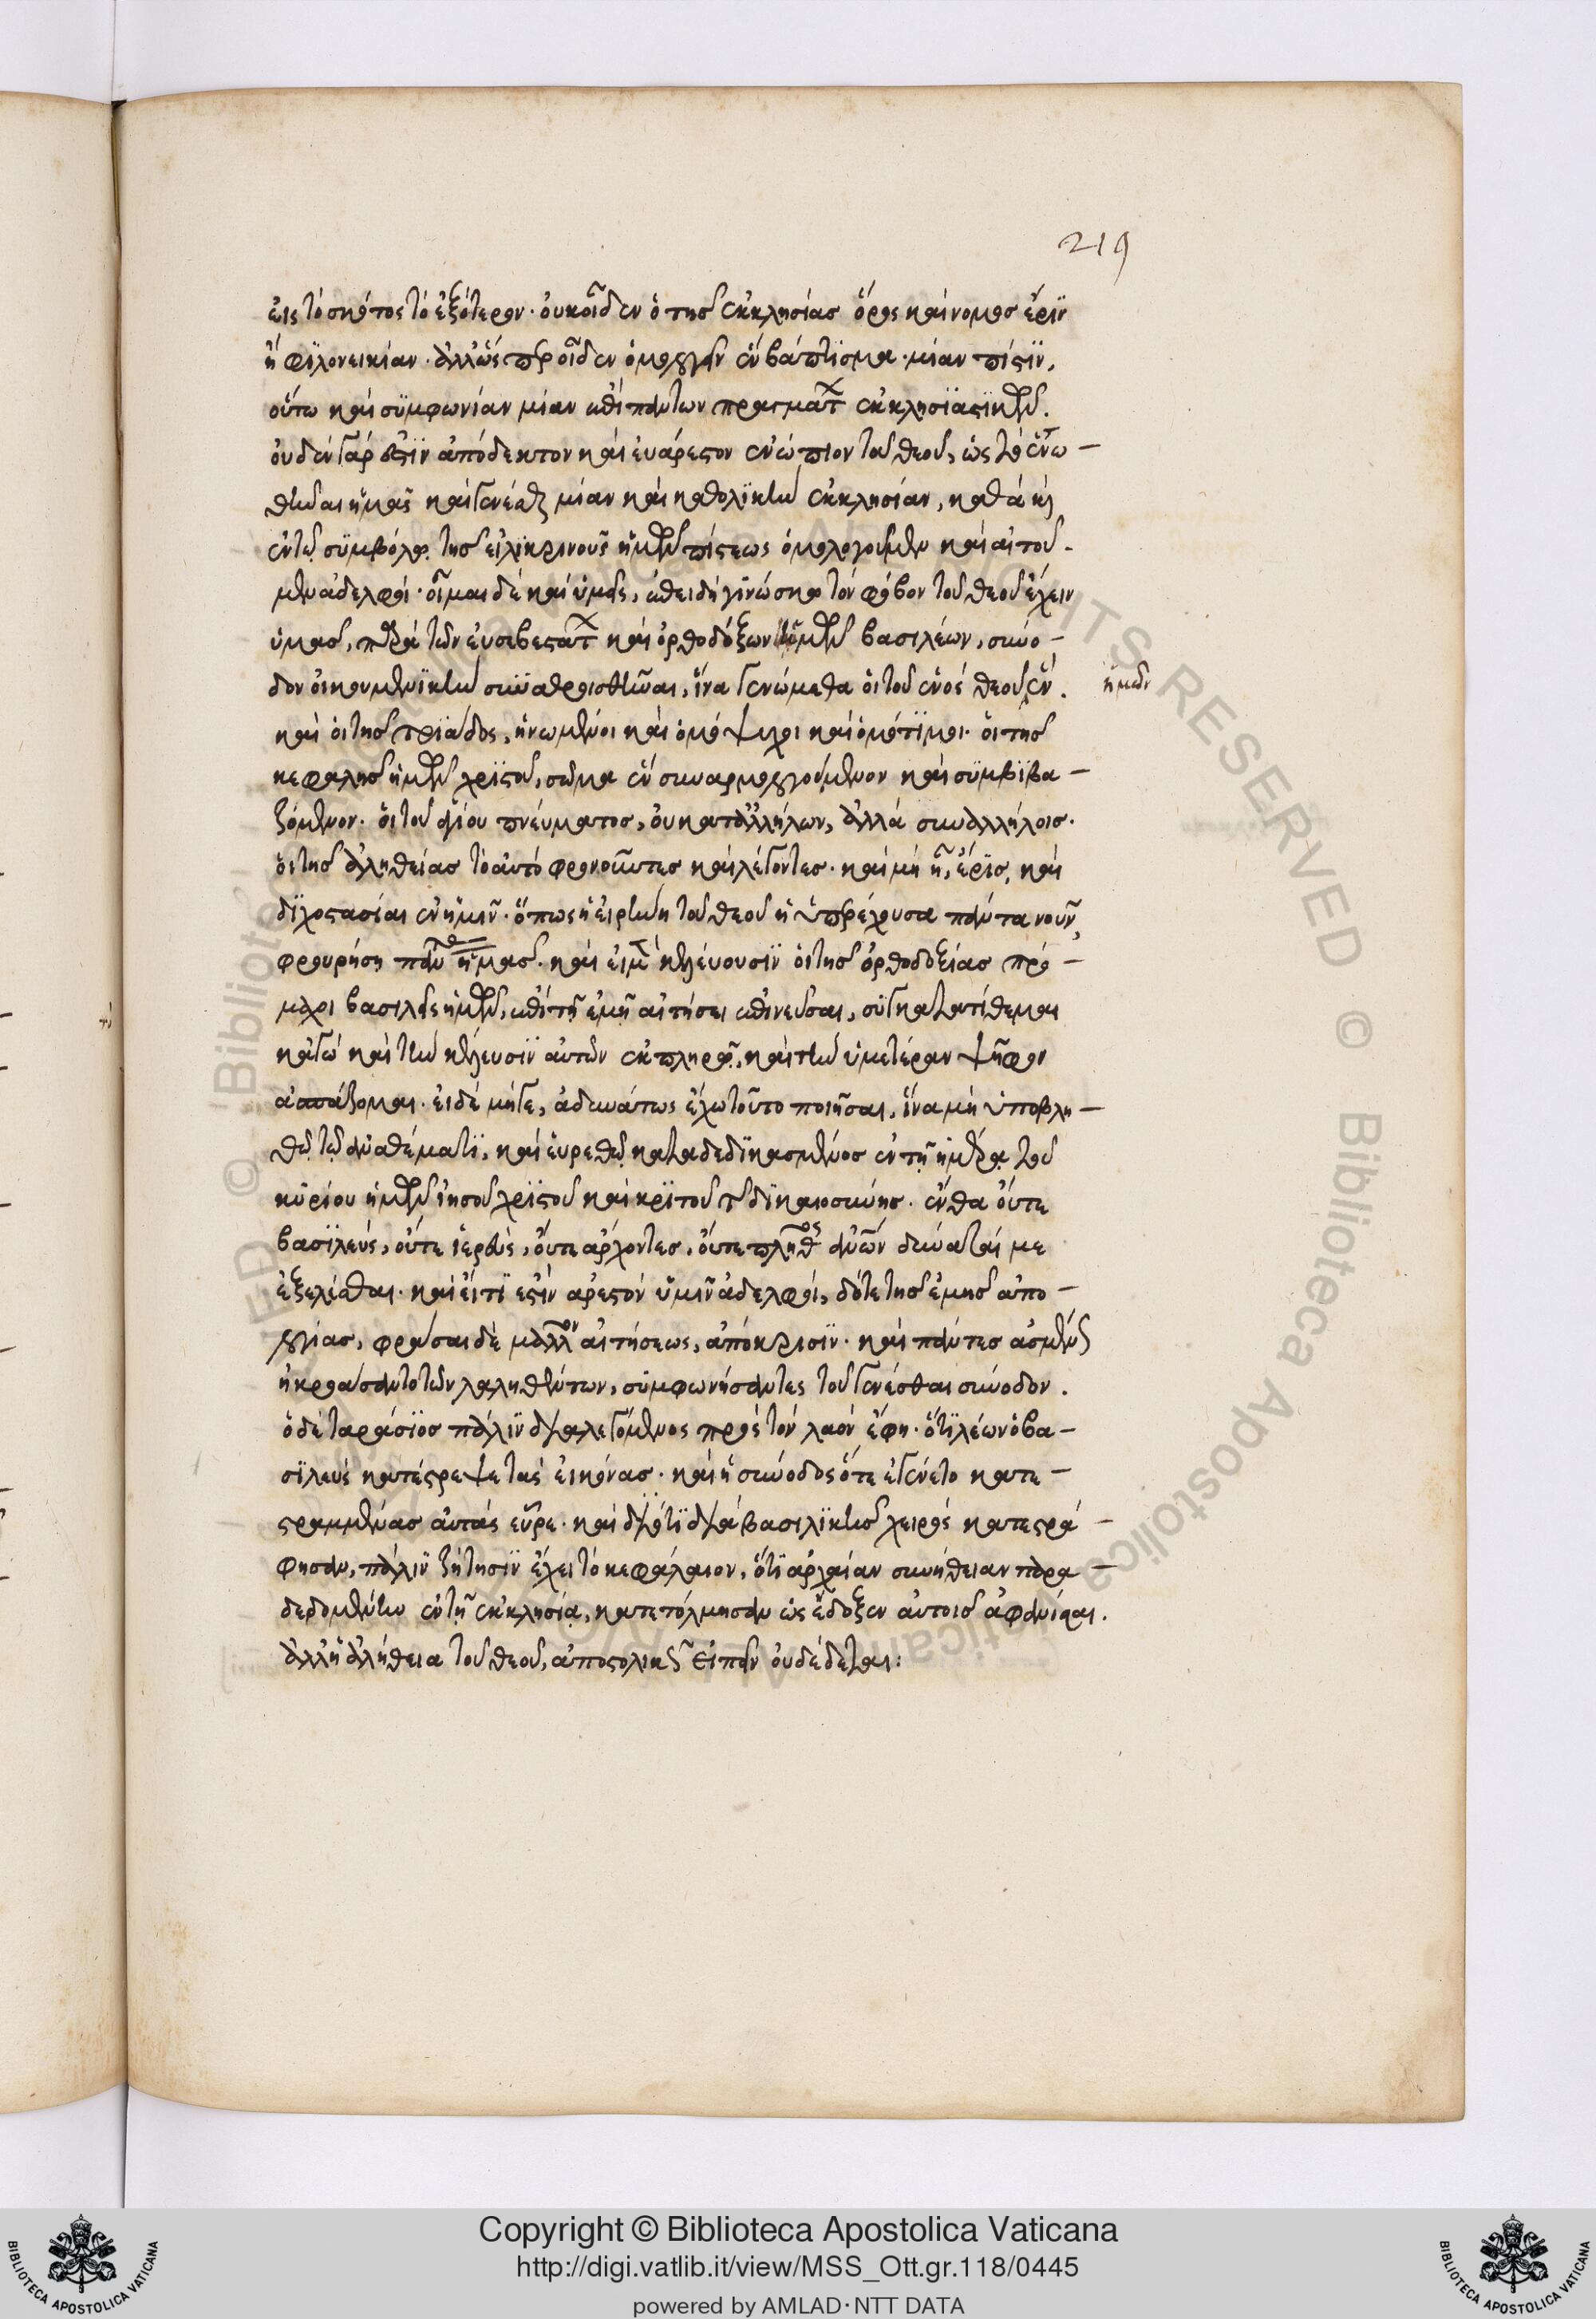 219
εἰς τὸ σκότος τὸ ἐξώτερον· οὐκ οἶδεν ὁ τῆς ἐκκλησίας ὅρος καὶ νόμος ἔριν
ἢ φιλονεικίαν· ἀλλ' ὥσπερ οἶδεν ὁμολογεῖν ἓν βάπτισμα· μίαν πίστιν,
οὕτω καὶ συμφωνίαν μίαν ἐπὶ πάντων πραγμάτων ἐκκλησιαστικῶν.
οὐδὲν γάρ ἐστιν ἀπόδεκτον καὶ εὐάρεστον ἐνώπιον τοῦ θεοῦ, ὡς τὸ ἑνω-
θῆναι ἡμᾶς καὶ γενέσθαι μίαν καὶ καθολικὴν ἐκκλησίαν, καθὰ καὶ
ἐν τῷ συμβόλῳ τῆς εἰλικρινοῦς ἡμῶν πίστεως ὁμολογοῦμεν καὶ αἰτοῦ-
μεν ἀδελφοί· οἶμαι δὲ καὶ ὑμᾶς, ἐπειδὴ γινώσκω τὸν φόβον τοῦ θεοῦ ἔχειν
ὑμᾶς, παρὰ τῶν εὐσεβεστάτων καὶ ὀρθοδόξων ἡμῶν βασιλέων, σύνο-
δον οἰκουμενικὴν συναθροισθῆναι, ἵνα γενώμεθα οἱ τοῦ ἑνὸς θεοῦ ἕν.
ἡμῶν
καὶ οἱ τῆς τριάδος, ἡνωμένοι καὶ ὁμόψυχοι καὶ ὁμότιμοι· οἱ τῆς
κεφαλῆς ἡμῶν χριστοῦ, σῶμα ἓν συναρμολογούμενον καὶ συμβιβα-
ζόμενον· οἱ τοῦ ἁγίου πνεύματος, οὐ κατ' ἀλλήλων, ἀλλὰ σὺν ἀλλήλοις·
οἱ τῆς ἀληθείας τὸ αὐτὸ φρονοῦντες καὶ λέγοντες· καὶ μὴ ᾖ ἔρις, καὶ
διχοστασίαι ἐν ἡμῖν· ὅπως ἡ εἰρήνη τοῦ θεοῦ ἡ ὑπερέχουσα πάντα νοῦν,
φρουρήσῃ πάντας ἡμᾶς. καὶ εἰ μὲν κελεύουσιν οἱ τῆς ὀρθοδοξίας πρό-
μαχοι βασιλεῖς ἡμῶν, ἐπὶ τῇ ἐμῇ αἰτήσει ἐπινεῦσαι, συγκατατίθεμαι
κἀγὼ καὶ τὴν κέλευσιν αὐτῶν ἐκπληρῶ, καὶ τὴν ὑμετέραν ψῆφον
ἀσπάζομαι· εἰ δὲ μήγε, ἀδυνάτως ἔχω τοῦτο ποιῆσαι, ἵνα μὴ ὑποβλη-
θῶ τῷ ἀναθέματι, καὶ εὑρεθῶ καταδεδικασμένος ἐν τῇ ἡμέρᾳ τοῦ
κυρίου ἡμῶν ἰησοῦ χριστοῦ καὶ κριτοῦ τῆς δικαιοσύνης· ἔνθα οὔτε
βασιλεὺς, οὔτε ἱερεὺς, οὔτε ἄρχοντες, οὔτε πλῆθος ἀνθρώπων δύναταί με
ἐξελέσθαι· καὶ εἴ τι ἐστὶν ἀρεστὸν ὑμῖν ἀδελφοί, δότε τῆς ἐμῆς ἀπο-
λογίας, φράσαι δὲ μᾶλλον αἰτήσεως, ἀπόκρισιν· καὶ πάντες ἀσμένως
ἠκροάσαντο τῶν λαληθέντων, συμφωνήσαντες τοῦ γενέσθαι σύνοδον.
ὁ δὲ ταράσιος πάλιν διαλεγόμενος πρὸς τὸν λαὸν ἔφη· ὅτι λέων ὁ βα-
σιλεὺς κατέστρεψε τὰς εἰκόνας· καὶ ἡ σύνοδος ὅτε ἐγένετο κατε-
στραμμένας αὐτὰς εὗρε· καὶ διότι διὰ βασιλικῆς χειρὸς κατεστρά-
φησαν, πάλιν ζήτησιν ἔχει τὸ κεφάλαιον, ὅτι ἀρχαίαν συνήθειαν παρα-
δεδομένην ἐν τῇ ἐκκλησίᾳ, κατετόλμησαν ὡς ἔδοξεν αὐτοῖς ἀφανίσαι.
ἀλλ' ἡ ἀλήθεια τοῦ θεοῦ, ἀποστολικῶς εἰπεῖν οὐ δέδεται:
Copyright © Biblioteca Apostolica Vaticana
http://digi.vatlib.it/view/MSS_Ott.gr.118/0445
powered by AMLAD·NTT DATA